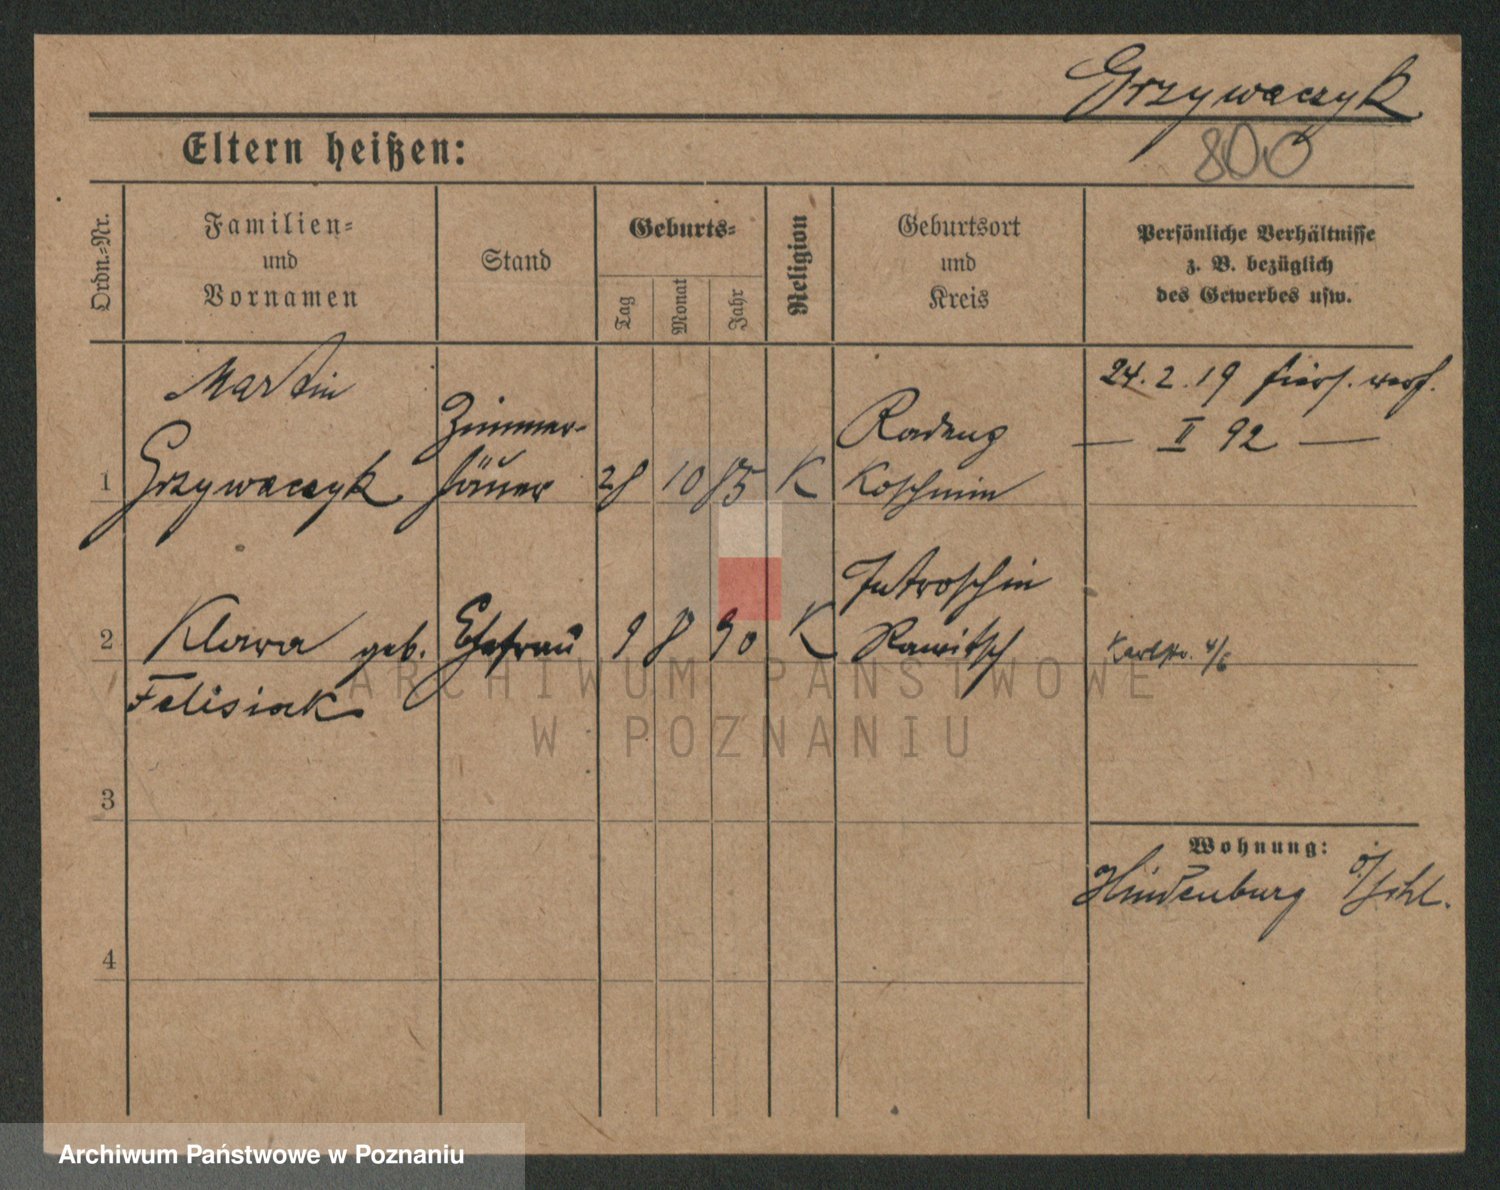 Grzywaczyk
800
Eltern heißen:
Ordn.=Nr.
Familien=
und
Vornamen
Stand
Geburts=
Tag
Monat
Jahr
Religion
Geburtsort
und
Kreis
Persönliche Verhältnisse
z. B. bezüglich
des Gewerbes usw.
Martin
Zimmer-
Radenz
24. 2. 19
1 Grzywaczyk häuer 28 10 85 K Koschmin
— II 92 —
Jutroschin
2 Klara geb. Ehefrau 9 8 90 K Rawitsch Karlstr. 4/6
Felisiak
ARCHIWUM PAŃSTWOWE
W POZNANIU
3
Wohnung:
Hindenburg O/Schl.
4
Archiwum Państwowe w Poznaniu